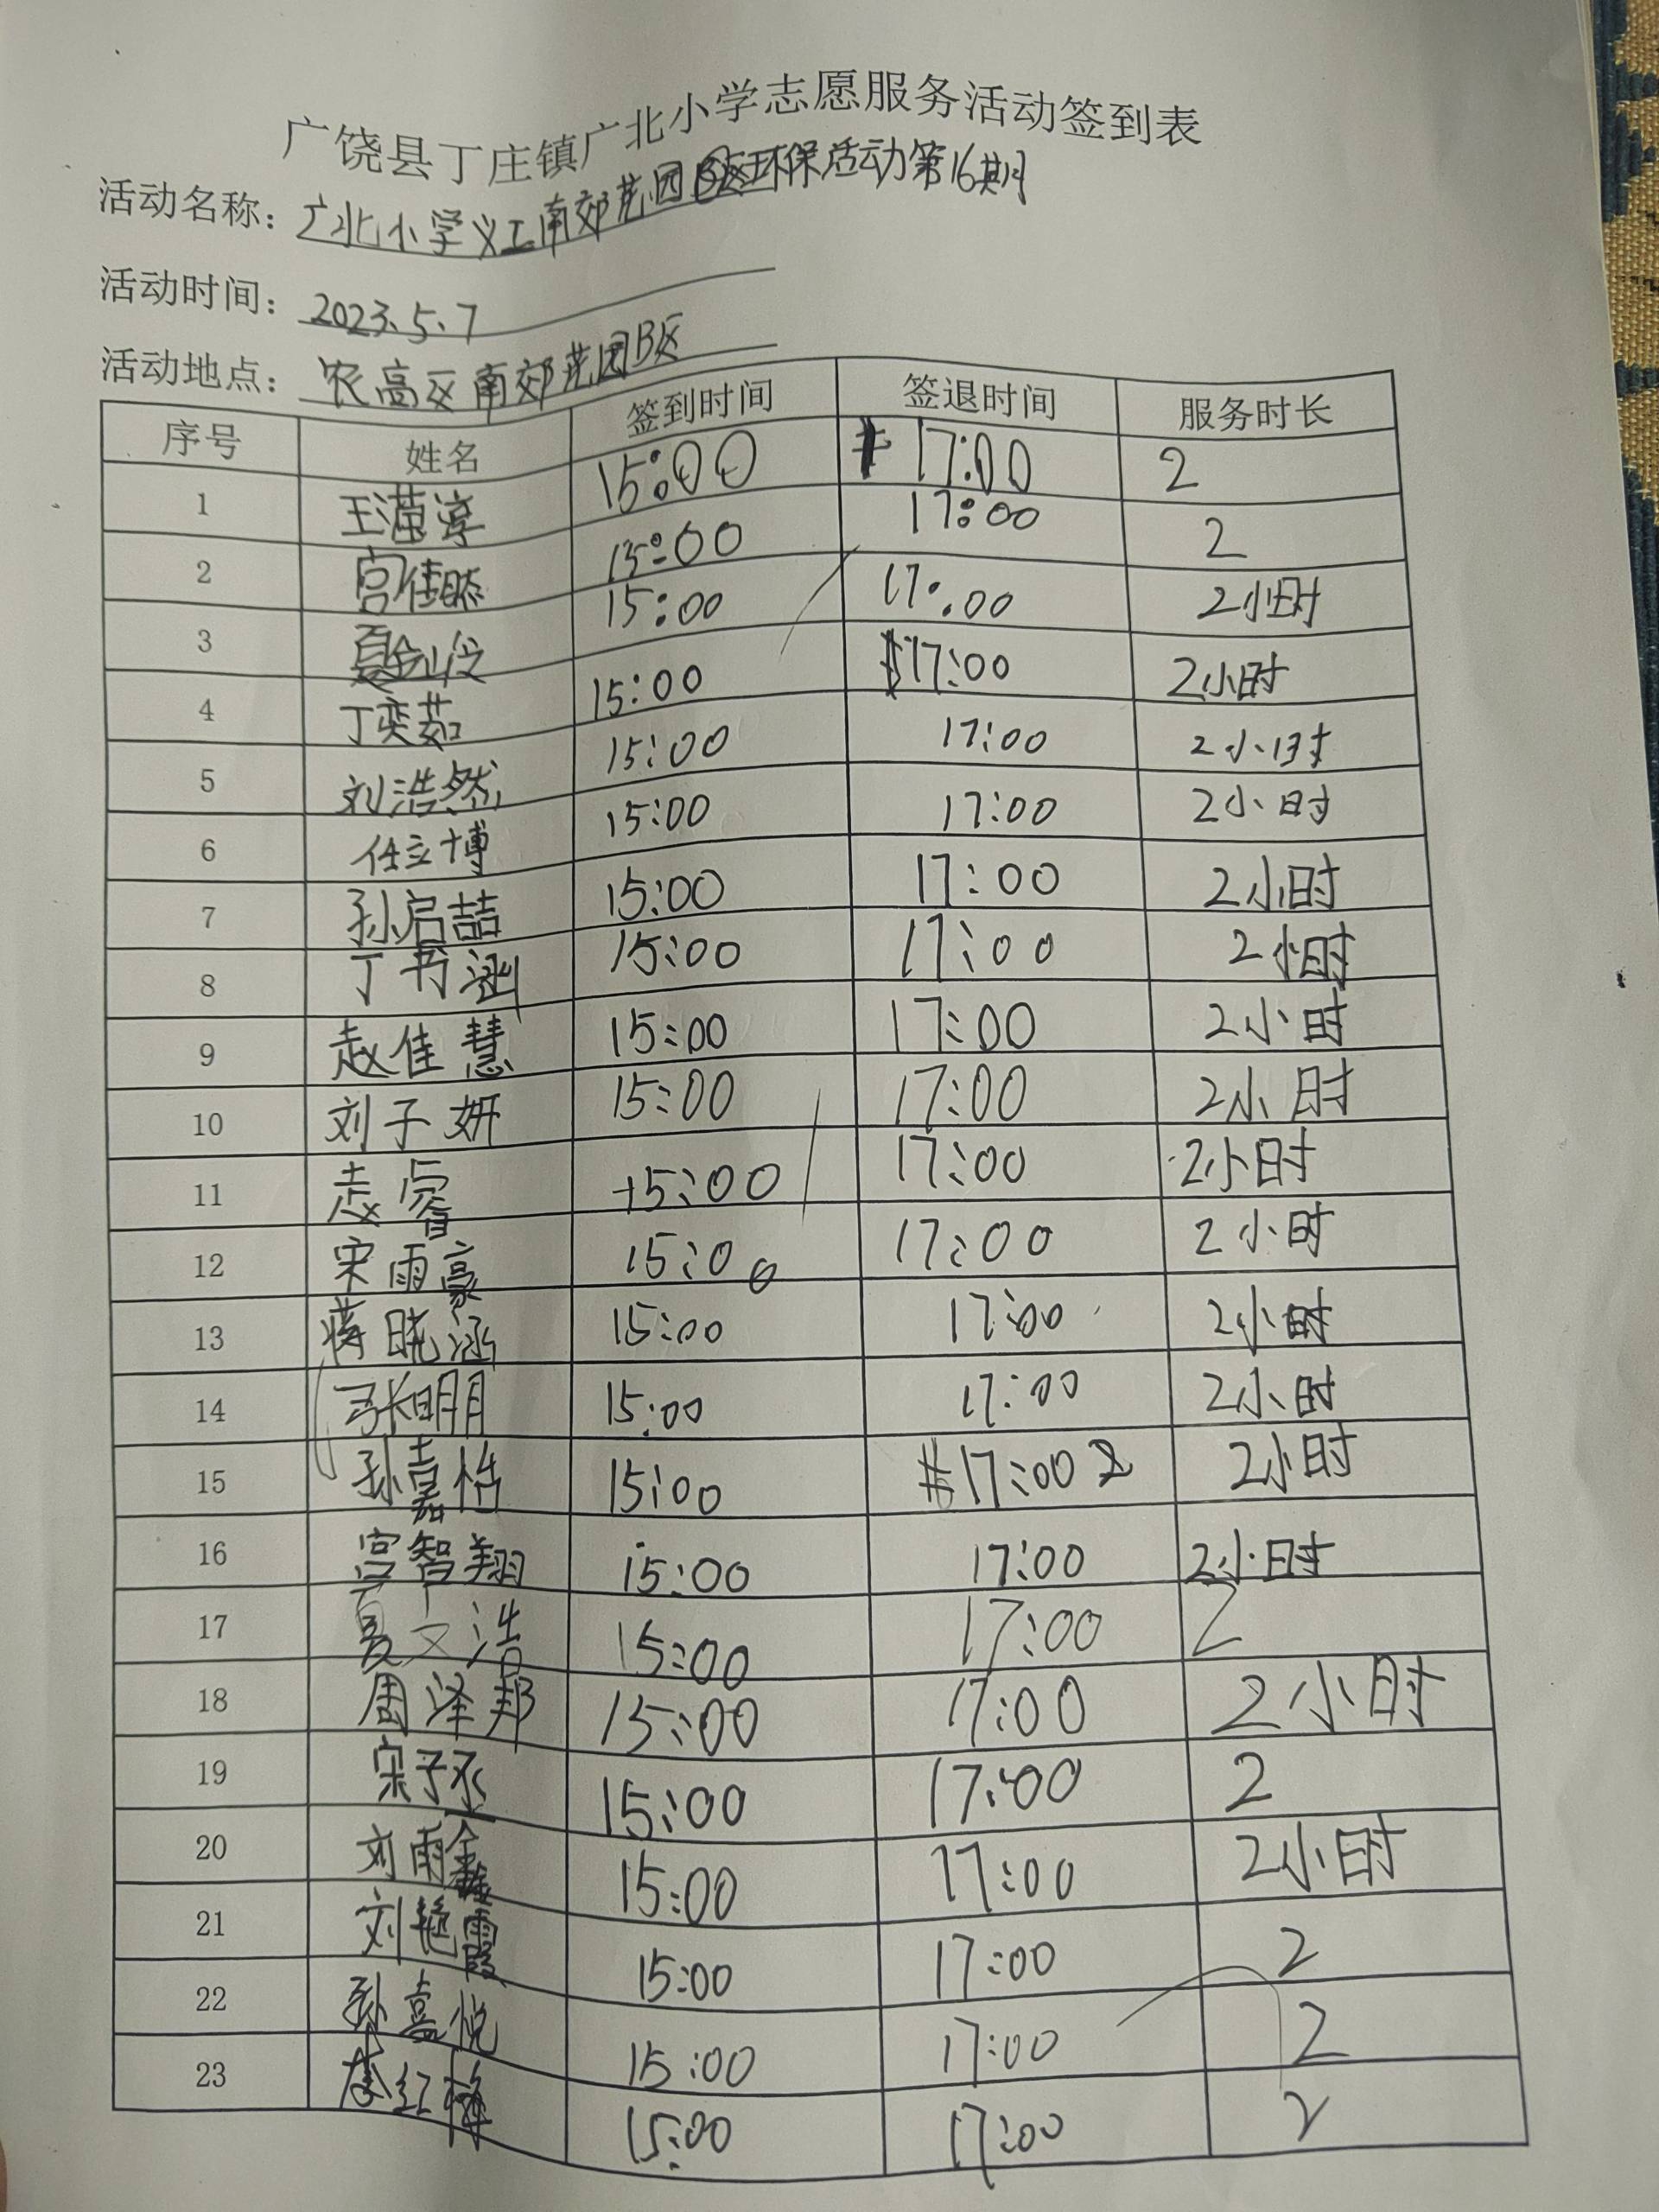 广饶县丁庄镇广北小学志愿服务活动签到表
活动名称：广北小学义工南郊花园B区环保活动第16期
活动时间：2023.5.7
活动地点：农高区南郊花园B区
序号 姓名 签到时间 签退时间 服务时长
1 王滢淳 15:00 17:00 2
2 宫佳 15:00 17:00 2
3 夏 15:00 17:00 2小时
4 丁奕茹 15:00 17:00 2小时
5 刘浩然 15:00 17:00 2小时
6 任立博 15:00 17:00 2小时
7 孙启喆 15:00 17:00 2小时
8 丁书涵 15:00 17:00 2小时
9 赵佳慧 15:00 17:00 2小时
10 刘子妍 15:00 17:00 2小时
11 睿 15:00 17:00 2小时
12 宋雨豪 15:00 17:00 2小时
13 蒋晓涵 15:00 17:00 2小时
14 张明月 15:00 17:00 2小时
15 孙嘉 15:00 17:00 2 2小时
16 宫智翔 15:00 17:00 2小时
17 夏文浩 15:00 17:00 2
18 周泽邦 15:00 17:00 2小时
19 宋子丞 15:00 17:00 2
20 刘雨鑫 15:00 17:00 2小时
21 刘艳霞 15:00 17:00 2
22 孙嘉悦 15:00 17:00 2
23 李红梅 15:00 17:00 2